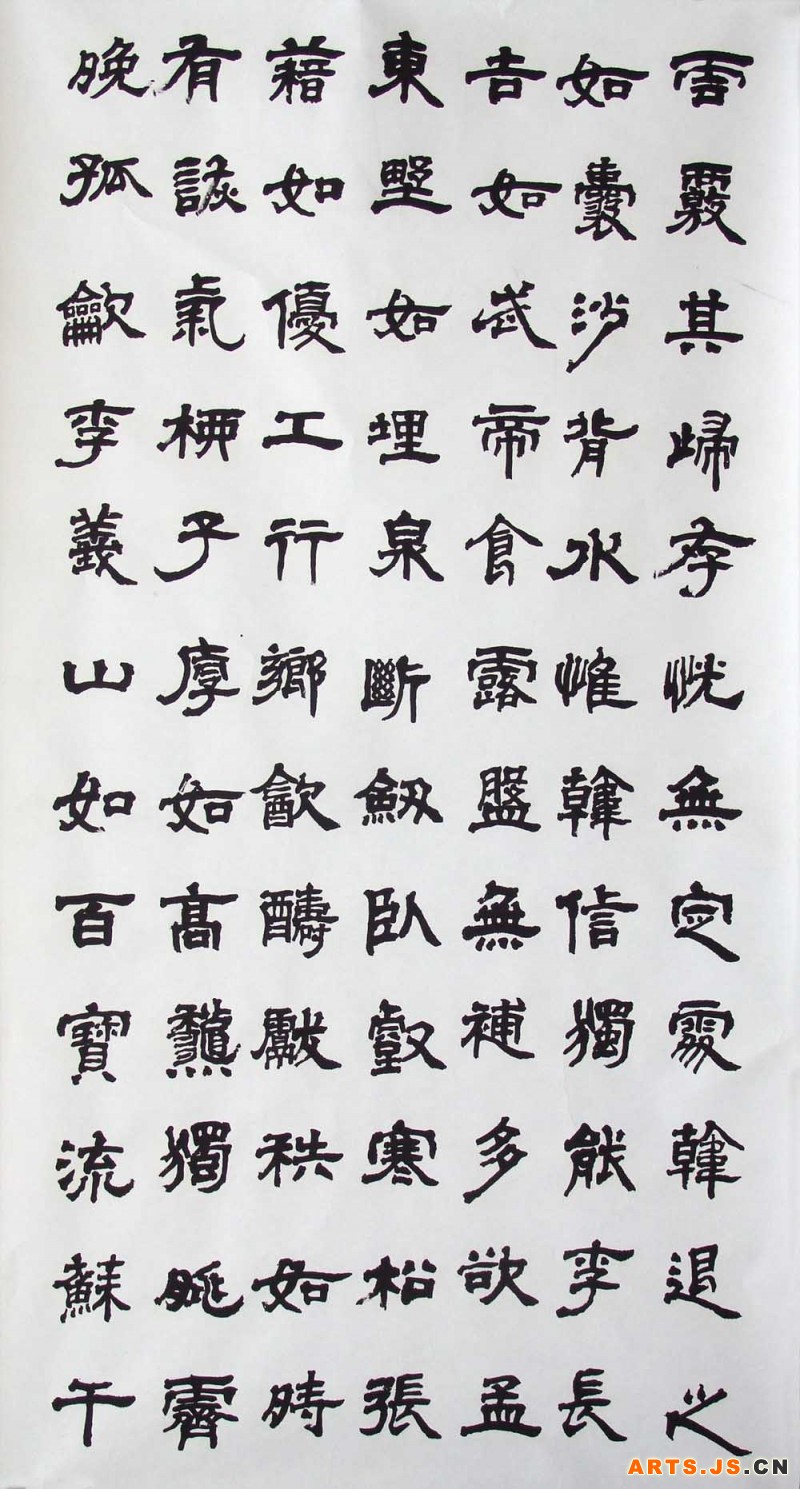 雲覈其歸存恍無定處韓退之
如囊沙背水惟韓信獨能李長
吉如武帝食露盤無補多欲孟
東埜如埋泉斷劒臥壑寒松張
藉如優工行鄉飲醻獻秩如時
有詼氣柳子厚如高秋獨眺霽
晚孤歙李義山如百寶流蘇千
ARTS.JS.CN